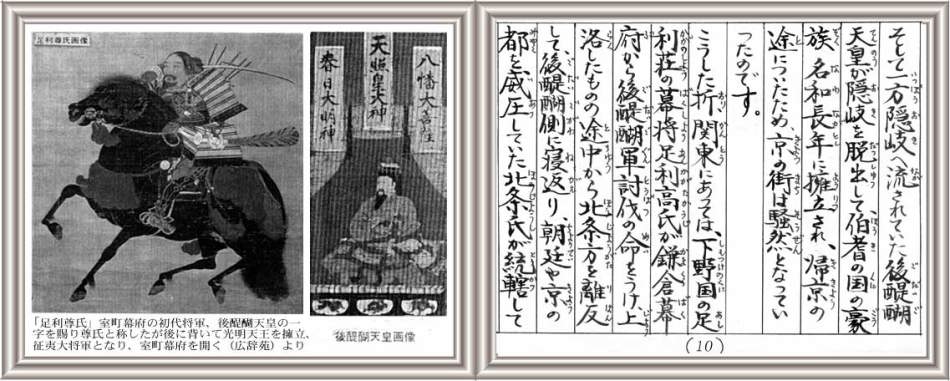 足利尊氏画像
八幡大菩薩
天照皇大神
春日大明神
「足利尊氏」室町幕府の初代将軍、後醍醐天皇の一
字を賜り尊氏と称したが後に背いて光明天王を擁立、
征夷大将軍となり、室町幕府を開く（広辞苑）より
後醍醐天皇画像
そして一方隠岐へ流されていた後醍醐
天皇が隠岐を脱出して、伯耆の国の豪
族、名和長年に擁立され、帰京の
途についたため、京の街は騒然となってい
ったのです。
こうした折、関東にあっては、下野国の足
利荘の幕将足利高氏が鎌倉幕
府から後醍醐軍討伐の命をうけ、上
洛したものの途中から北条方を離反
して、後醍醐側に寝返り、朝廷や京の
都を威圧していた北条氏が統轄して
(10)